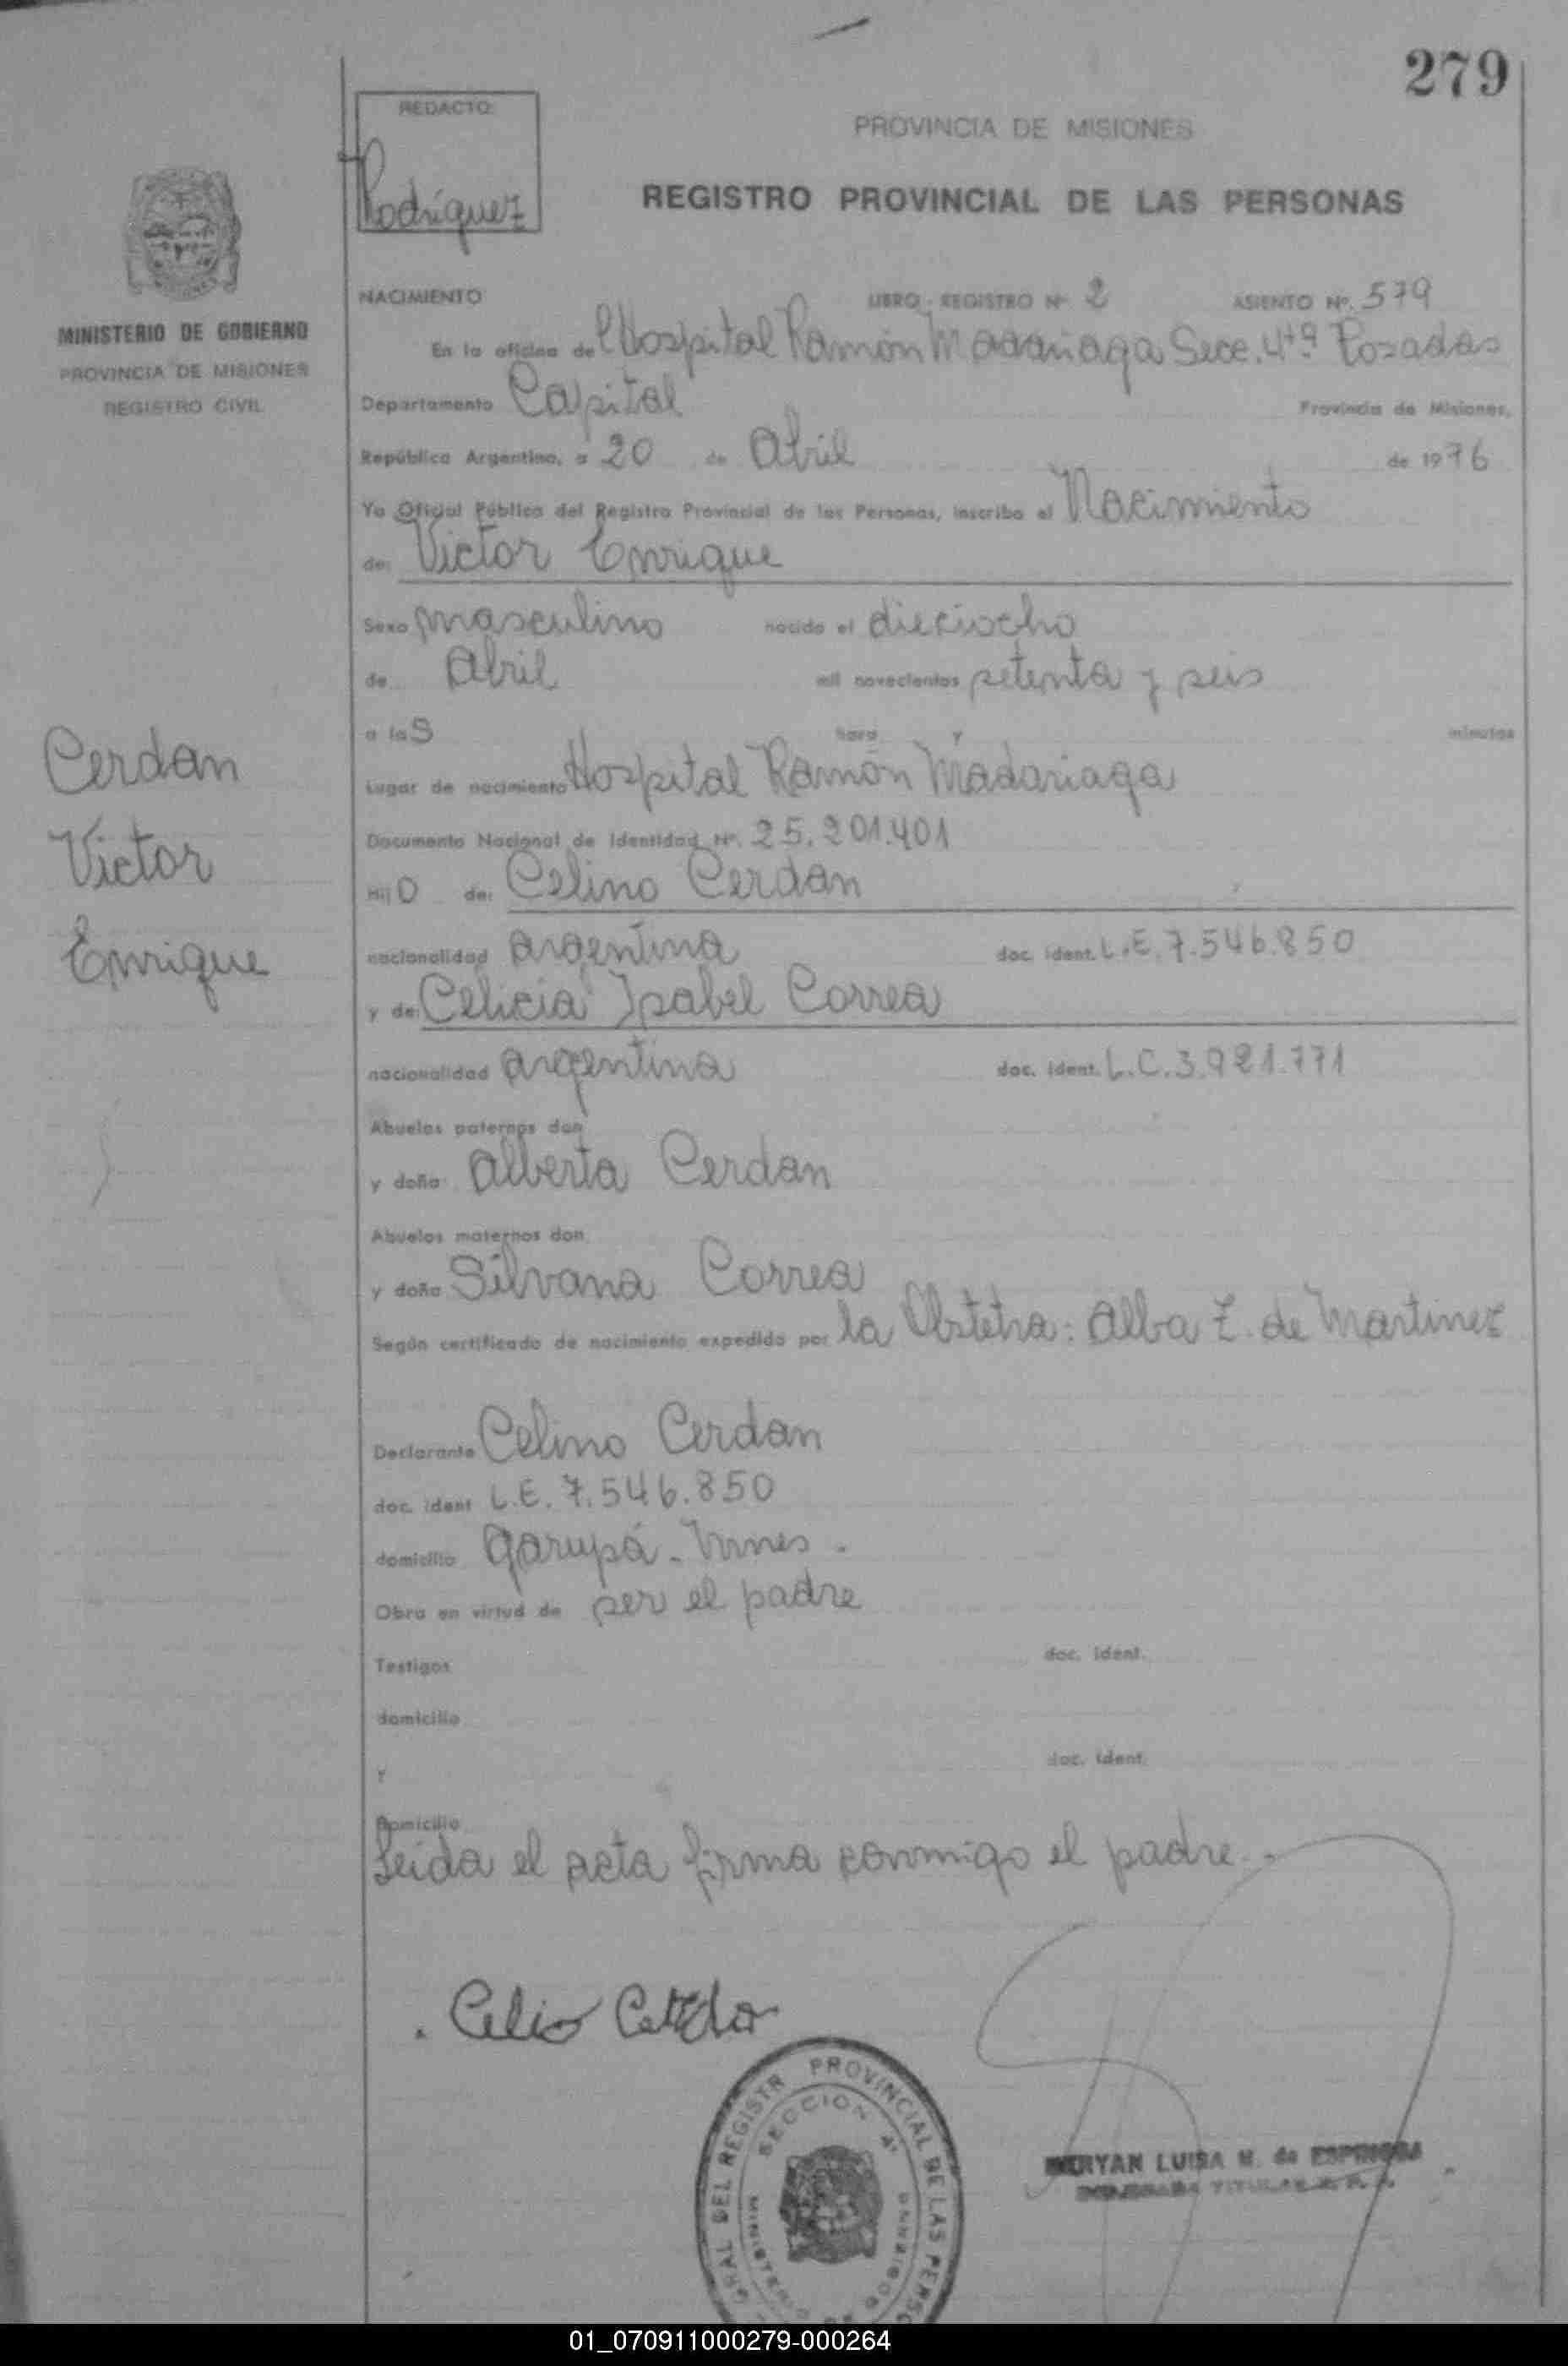 279
REDACTO:
Rodríguez
PROVINCIA DE MISIONES
REGISTRO PROVINCIAL DE LAS PERSONAS
MINISTERIO DE GOBIERNO
PROVINCIA DE MISIONES
REGISTRO CIVIL
NACIMIENTO LIBRO - REGISTRO Nº 2 ASIENTO Nº. 579
En la oficina del Hospital Ramón Madariaga Secc. 4ta Posadas
Departamento Capital Provincia de Misiones,
República Argentina, a 20 de Abril de 1976
Yo Oficial Público del Registro Provincial de las Personas, inscribo el Nacimiento
de: Victor Enrique
Sexo masculino nacido el dieciocho
de Abril mil novecientos setenta y seis
a las hora y minutos
Lugar de nacimiento Hospital Ramón Madariaga
Documento Nacional de Identidad Nº. 25.201.401
Hijo de: Celino Cerdan
nacionalidad argentina doc. ident. L.E. 7.546.850
y de Celicia Isabel Correa
nacionalidad argentina doc. ident. L.C. 3.921.771
Abuelos paternos don
y doña Alberta Cerdan
Abuelos maternos don
y doña Silvana Correa
Según certificado de nacimiento expedido por la Obstetra: Alba Z. de Martinez
Declarante Celino Cerdan
doc. ident L.E. 7.546.850
domicilio Garupá - Mnes.
Obra en virtud de ser el padre
Testigos doc. ident.
domicilio
Y doc. ident.
Domicilio
Leida el acta firma conmigo el padre.
Cerdan
Victor
Enrique
Celio
PROVINCIAL DE LAS PERSO
DEL REGISTR
SECCION 4ª
MINISTERIO
GOBIERNO
LUISA M. de ESPINOSA
TITULAR
01_070911000279-000264